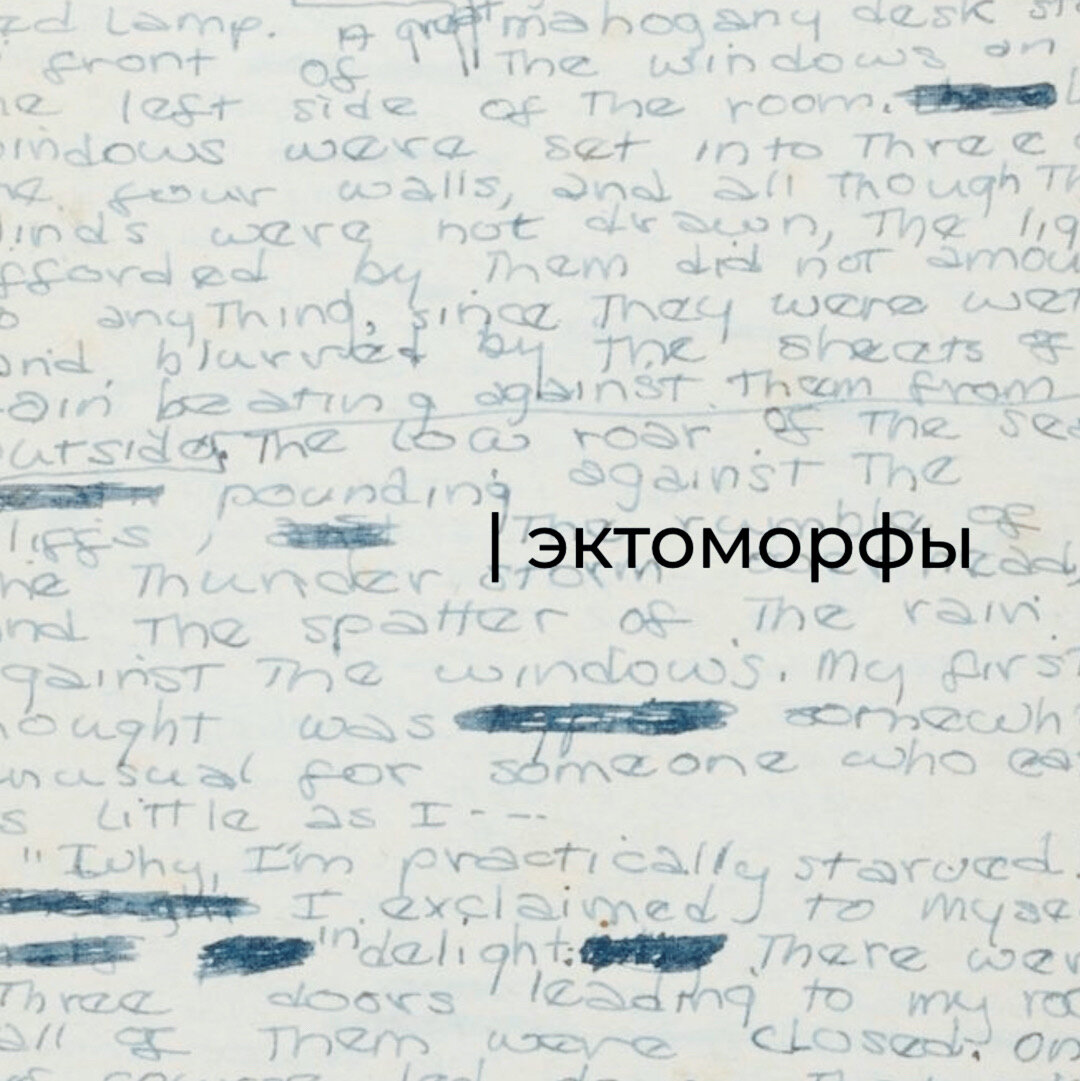 Lamp. A great mahogany desk
front of The windows on
left side of The room.
windows were set into Three
four walls, and all though
were not drawn, The
by Them did not
anything, since They were wet
and blurred by the sheets of
beating against Them from
outside. The low roar of The
pounding against The
The rumble of
| эктоморфы
Thunder storm
and The spatter of The rain
against The windows. My first
was
unusual for someone who
little as I---
"Why, I'm practically starved.
I exclaimed to
in delight. There were
Three doors leading to my
all of Them were closed.